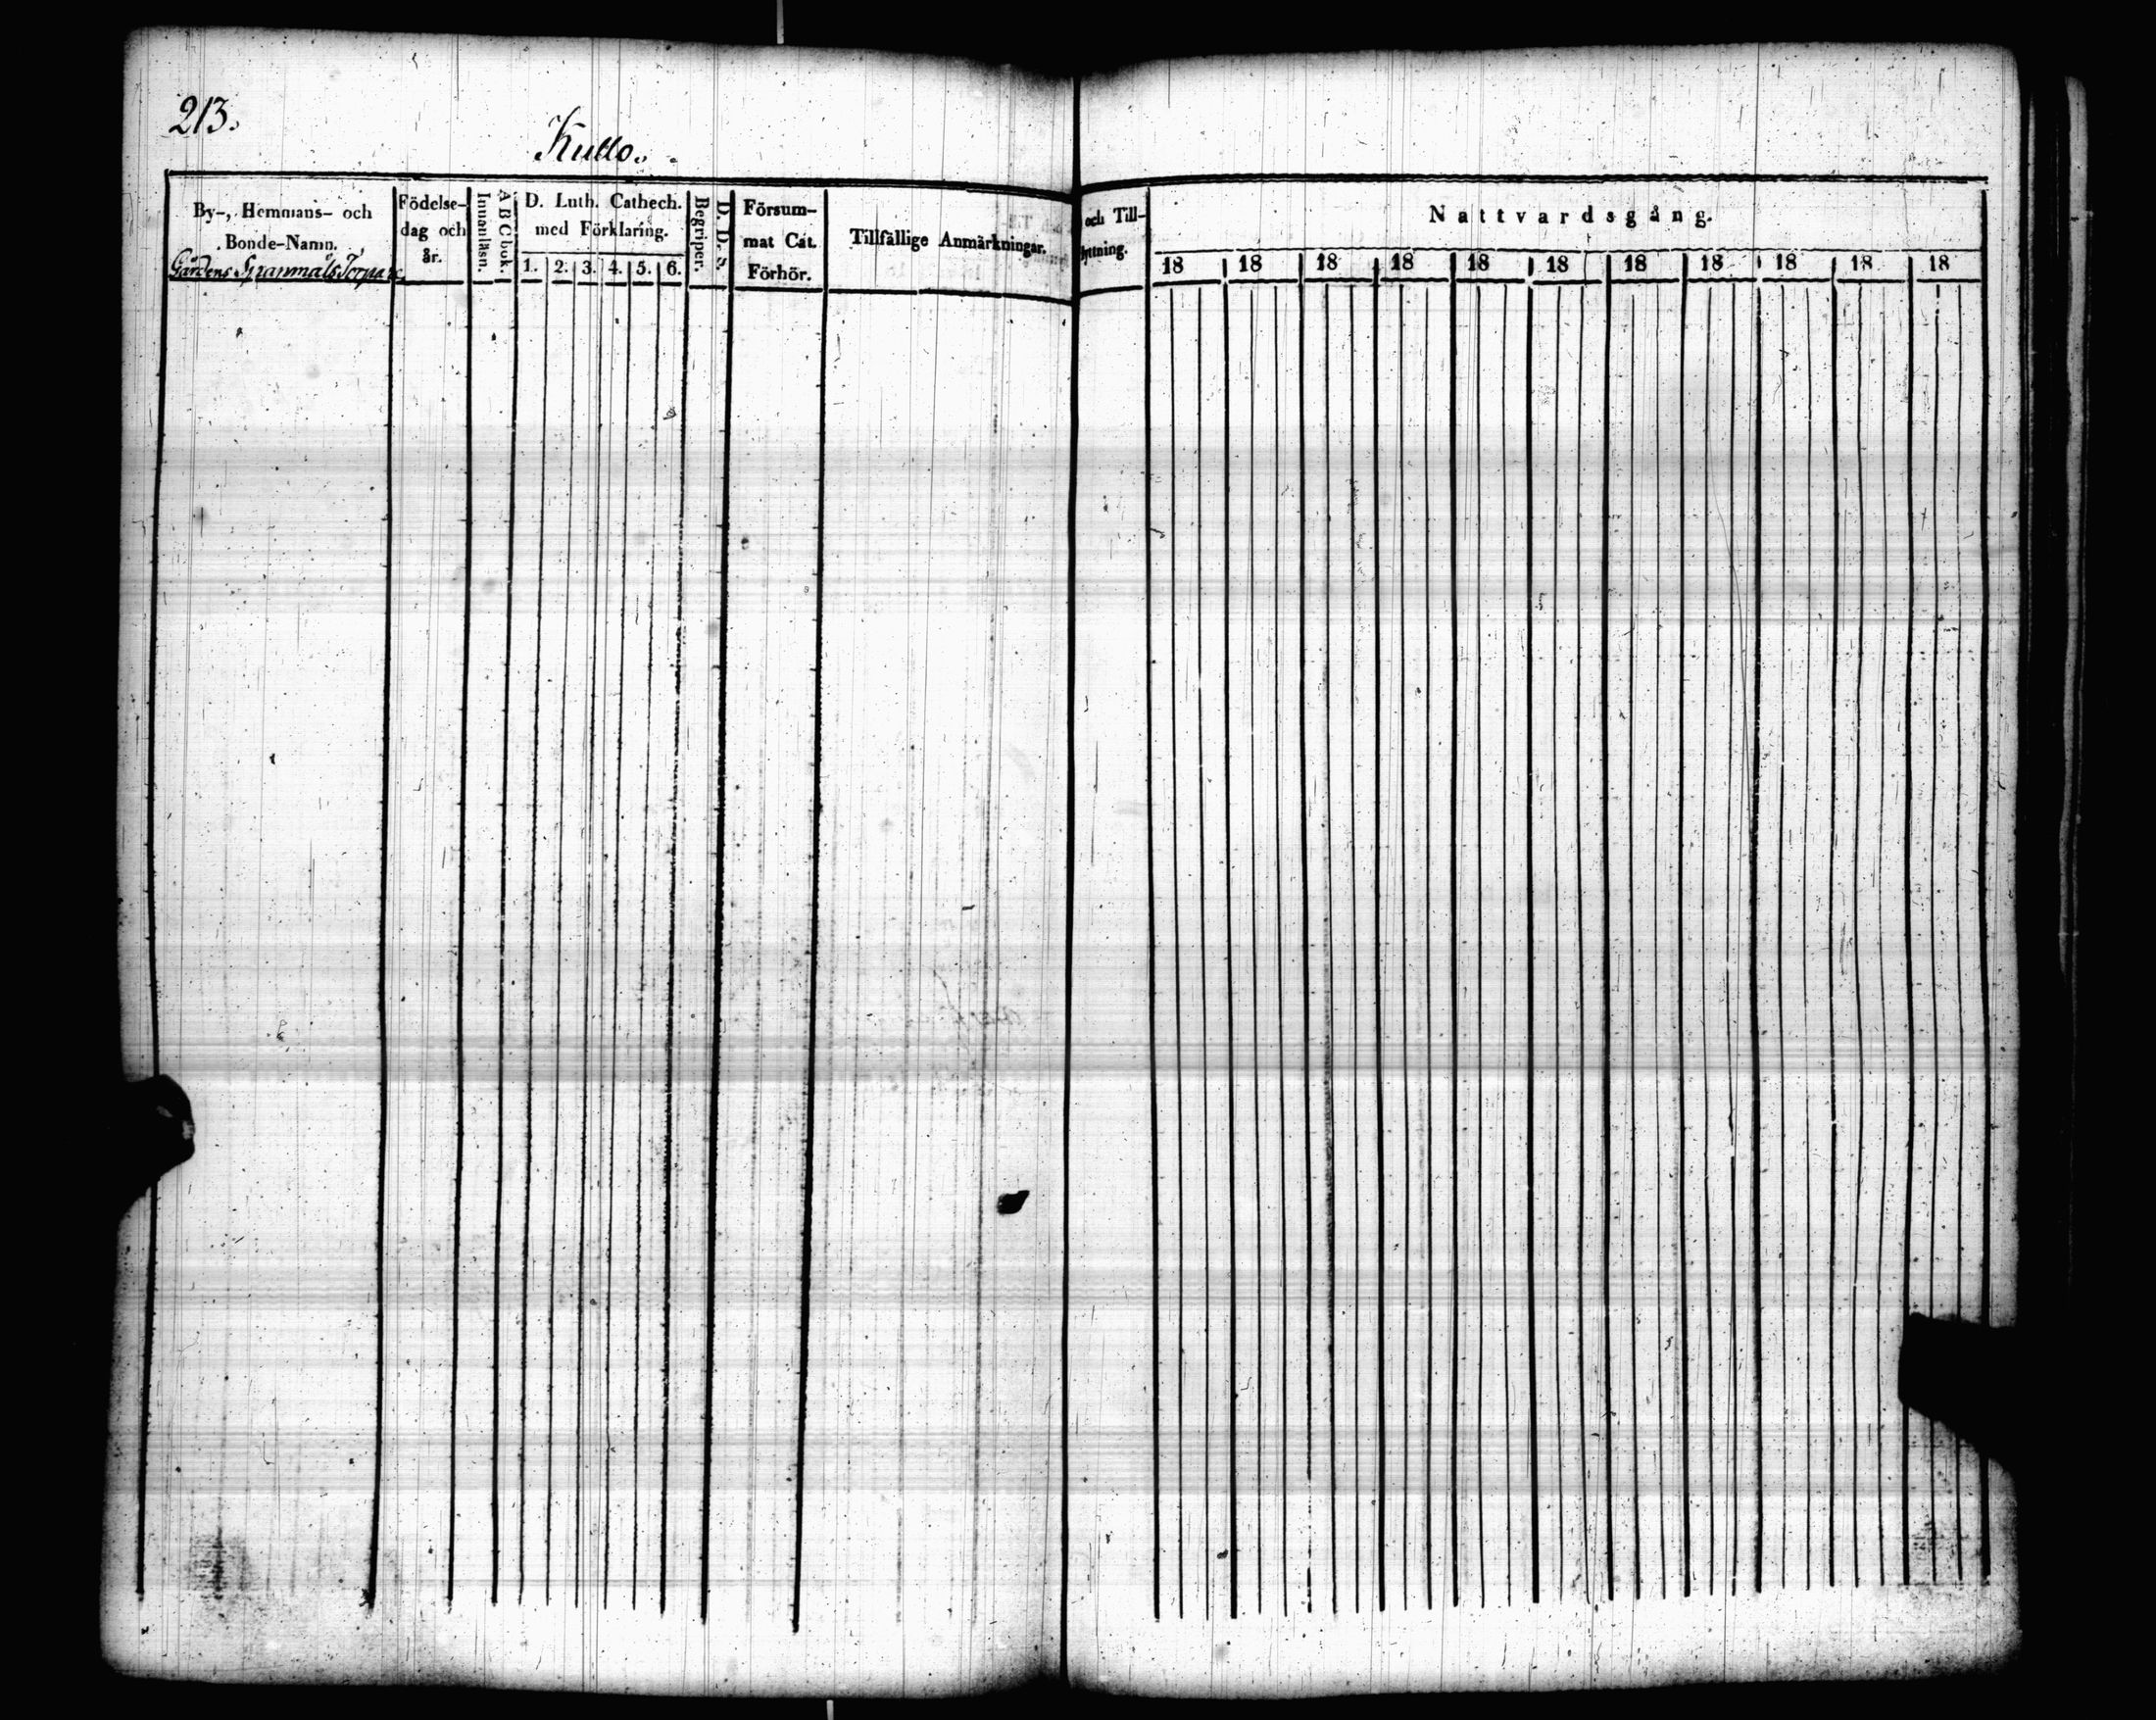 213.
Kullo.
By-, Hemmans- och
Bonde-Namn.
Gårdens Spanmåls Torpare
Födelse-
dag och
år.
Innanläsn.
A B C bok.
D. Luth. Cathech.
med Förklaring.
1. 2. 3. 4. 5. 6.
Begriper.
D. D. s.
Försum-
mat Cat.
Förhör.
Tillfällige Anmärkningar.
och Till-
flyttning.
Nattvardsgång.
18 18 18 18 18 18 18 18 18 18 18